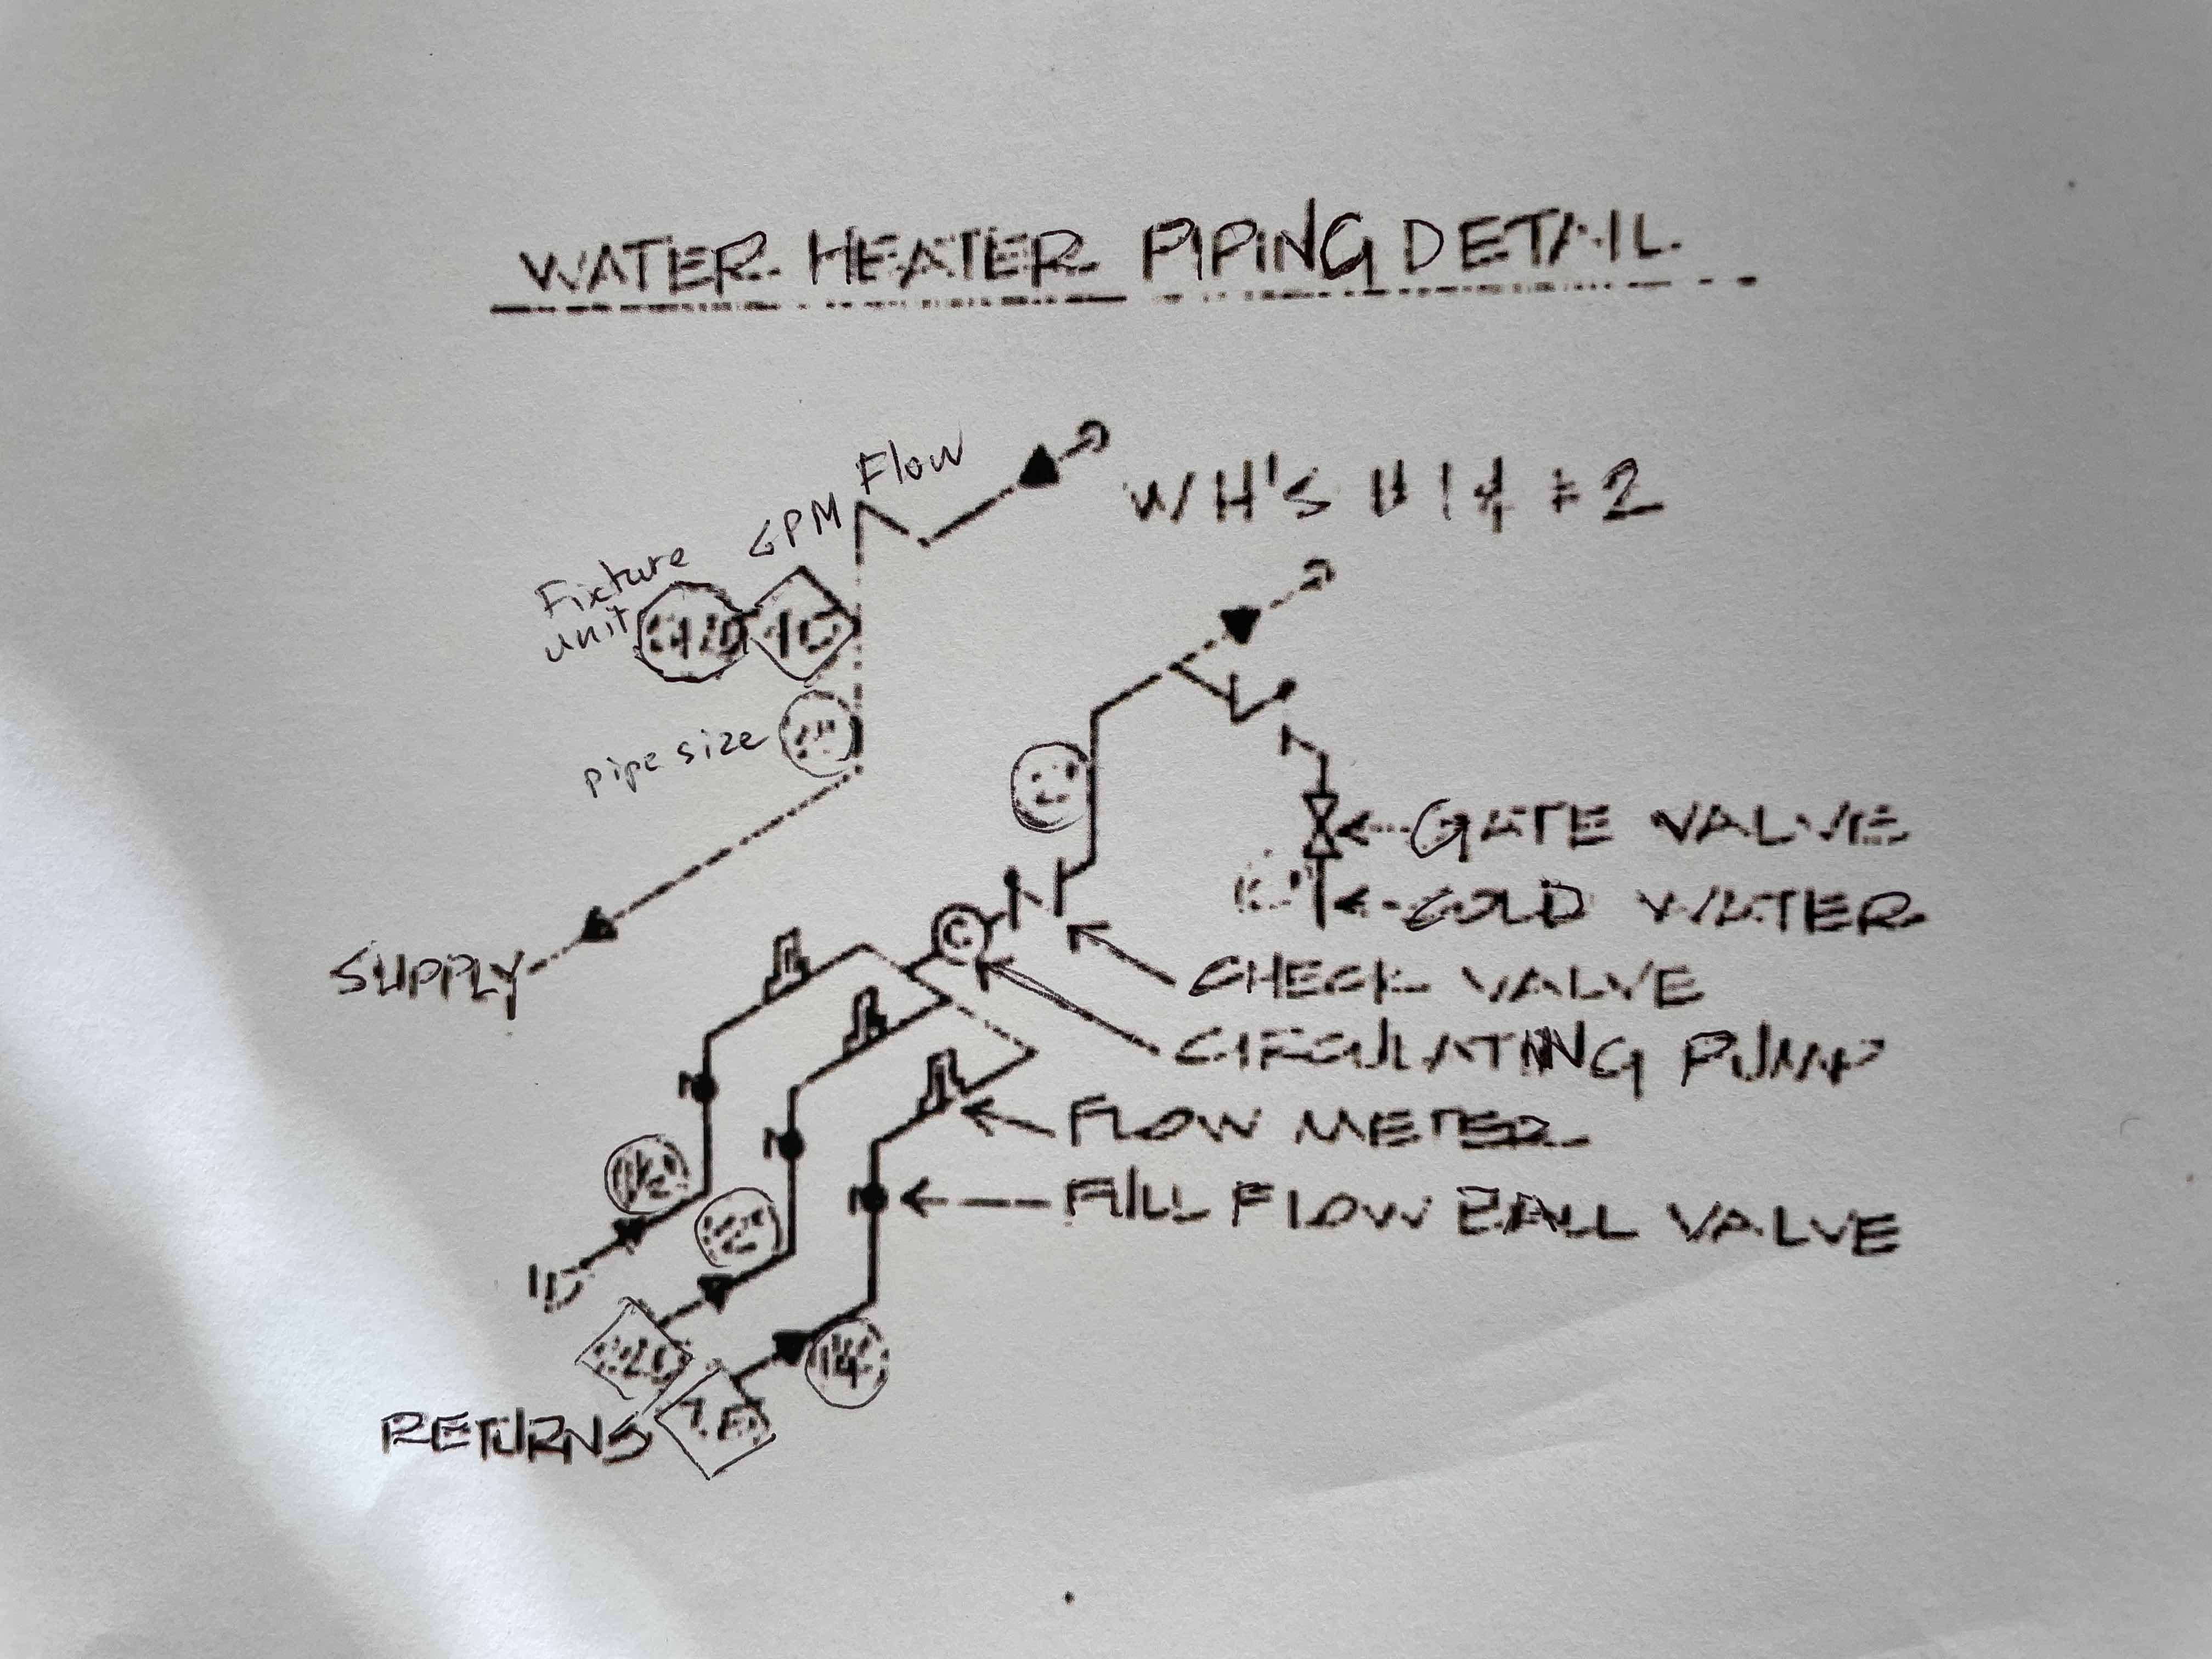 WATER HEATER PIPING DETAIL
Flow
GPM
WH'S #1 & #2
Fixture
unit
pipe size
GATE VALVE
COLD WATER
SUPPLY
C
CHECK VALVE
CIRCULATING PUMP
FLOW METER
FULL FLOW BALL VALVE
RETURNS